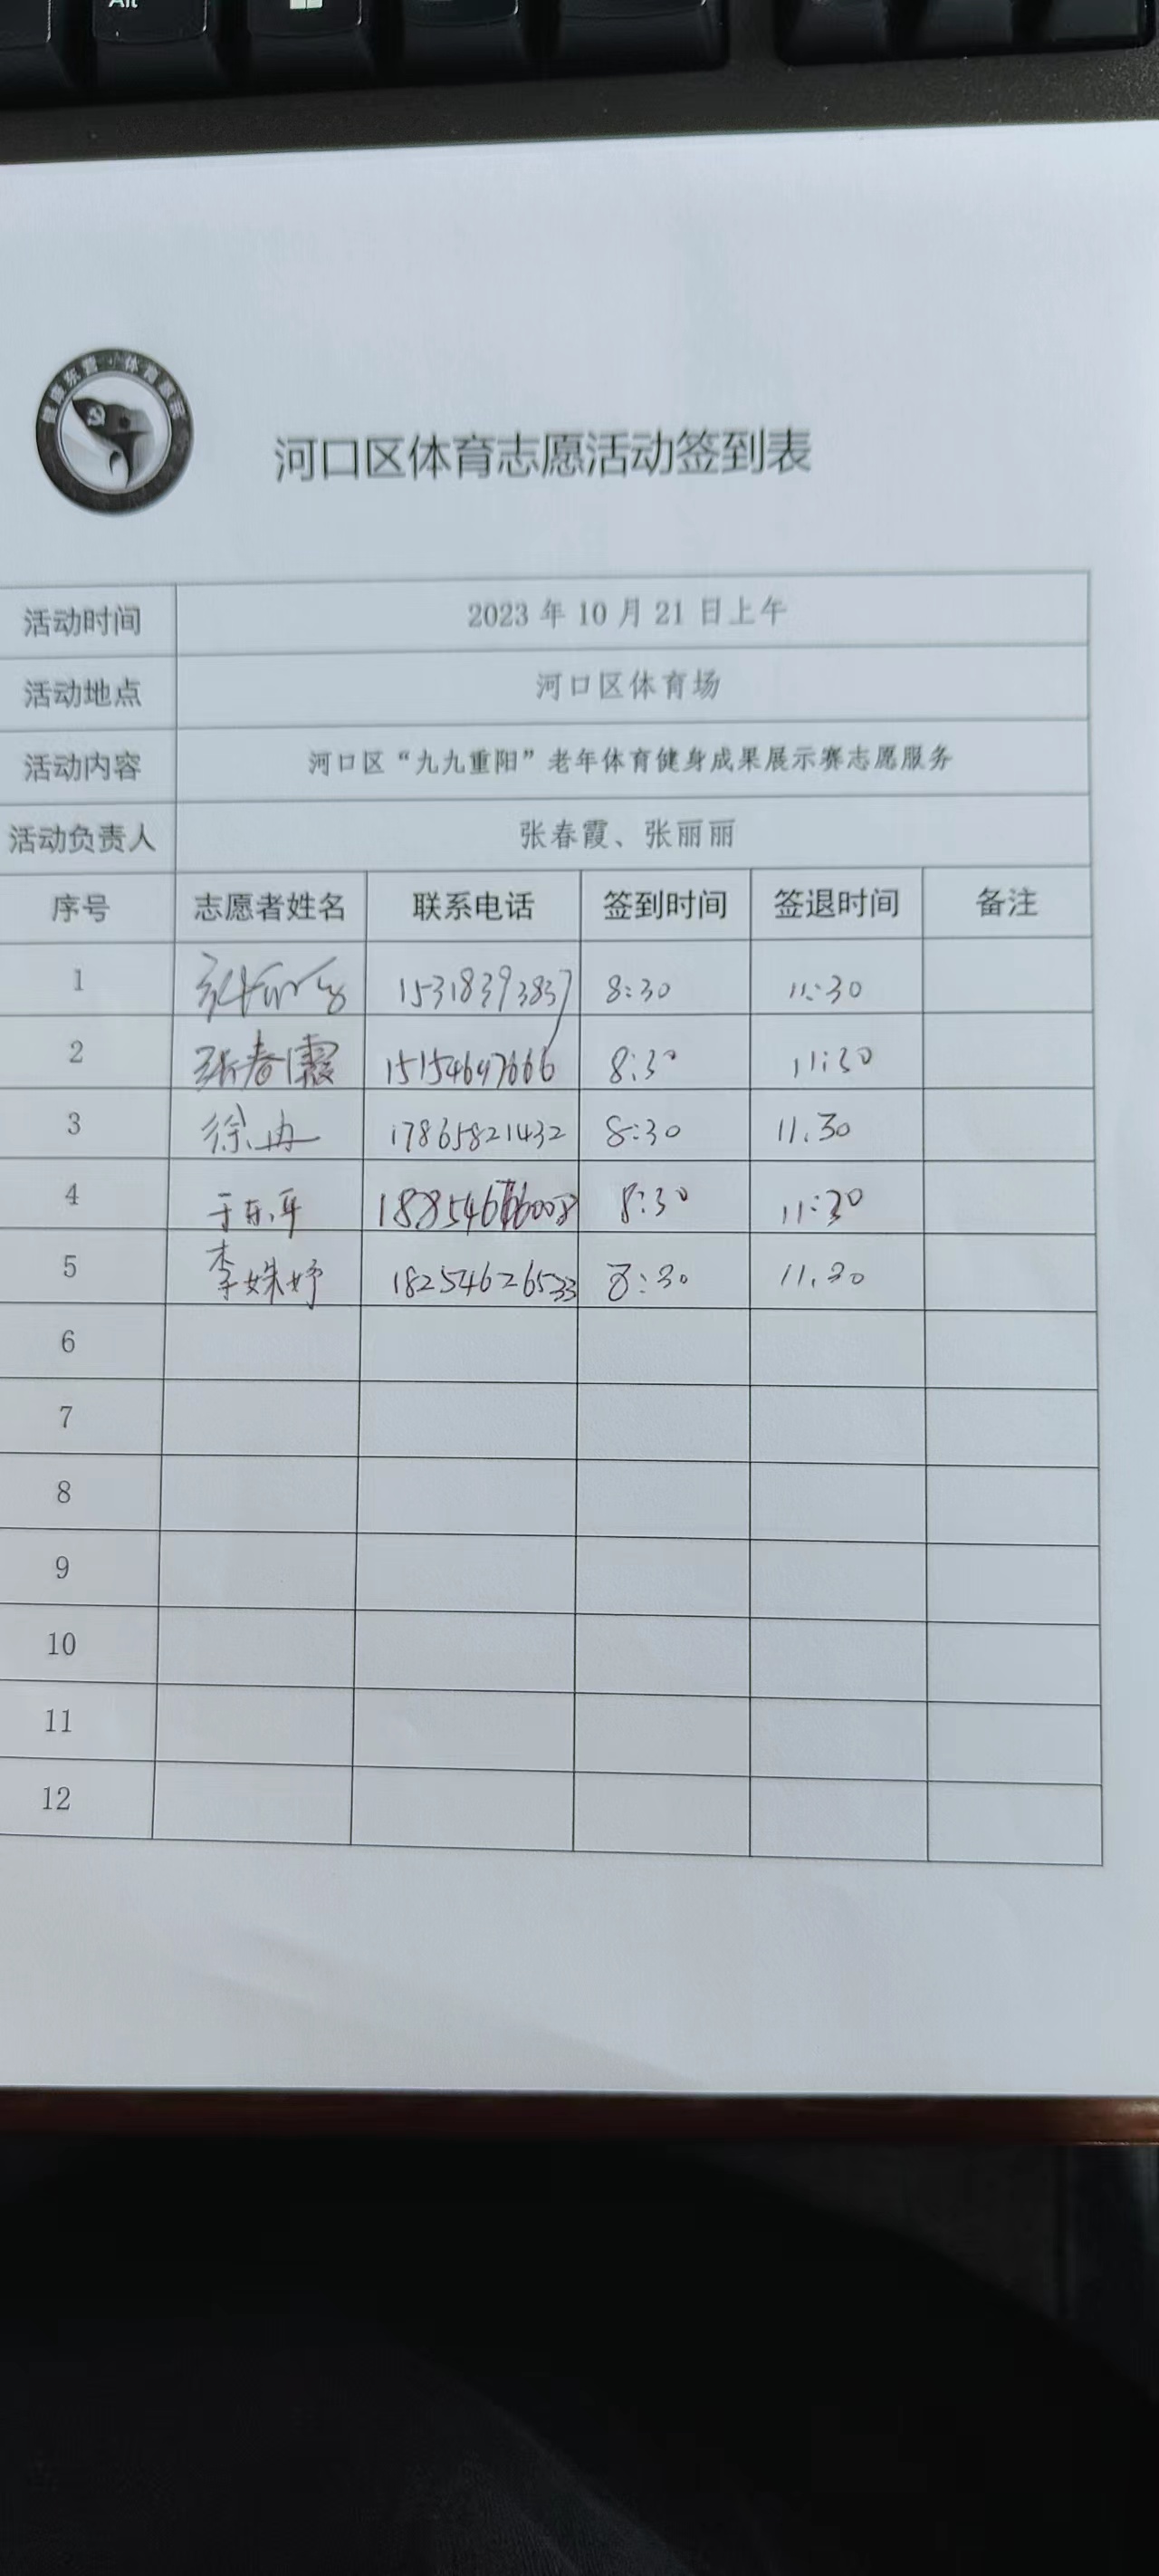 Alt
健康东营·体育惠民
河口区体育志愿活动签到表
活动时间 2023 年 10 月 21 日上午
活动地点 河口区体育场
活动内容 河口区“九九重阳”老年体育健身成果展示赛志愿服务
活动负责人 张春霞、张丽丽
序号 志愿者姓名 联系电话 签到时间 签退时间 备注
1 15318393837 8:30 11:30
2 张春霞 15154697666 8:30 11:30
3 徐冉 17865821432 8:30 11.30
4 于东平 8:30 11:30
5 李姝妤 18254626533 8:30 11.30
6
7
8
9
10
11
12